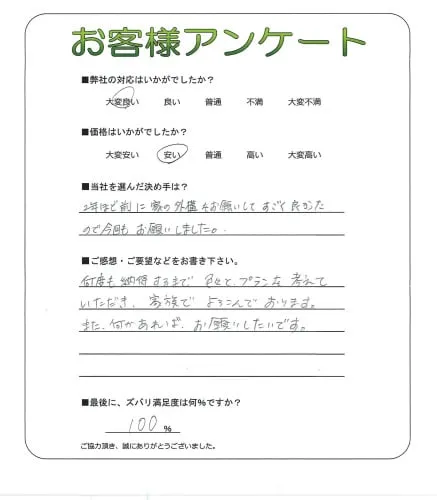 お客様アンケート
■弊社の対応はいかがでしたか？
大変良い 良い 普通 不満 大変不満
■価格はいかがでしたか？
大変安い 安い 普通 高い 大変高い
■当社を選んだ決め手は？
2年ほど前に家の外構をお願いしてすごく良かった
ので今回もお願いしました。
■ご感想・ご要望などをお書き下さい。
何度も納得するまで色々とプランを考えて
いただき、家族でよろこんでおります。
また、何かあれば、お願いしたいです。
■最後に、ズバリ満足度は何%ですか？
100 %
ご協力頂き、誠にありがとうございました。